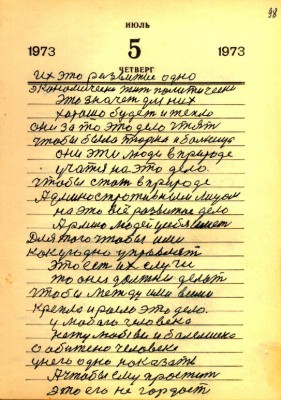 98
ИЮЛЬ
1973 5 1973
ЧЕТВЕРГ
Их это развитие одно
экономически жит политически
Это значет для них
хорошо будет и тепло
они за то это дело
чтобы была
они эти люди в природе
учатся на это дело
чтобы стат в природе
Административным лицом
на это всё развитое дело
Армию людей
Для того чтобы ими
как угодно управлят
Это ест их случи
то они должни делат
чтобы между ими всеми
крепло и росло это дело.
у любого человека
нету любви и
обижено человека
у него одно показат
А чтобы ему простит
это его не гордост